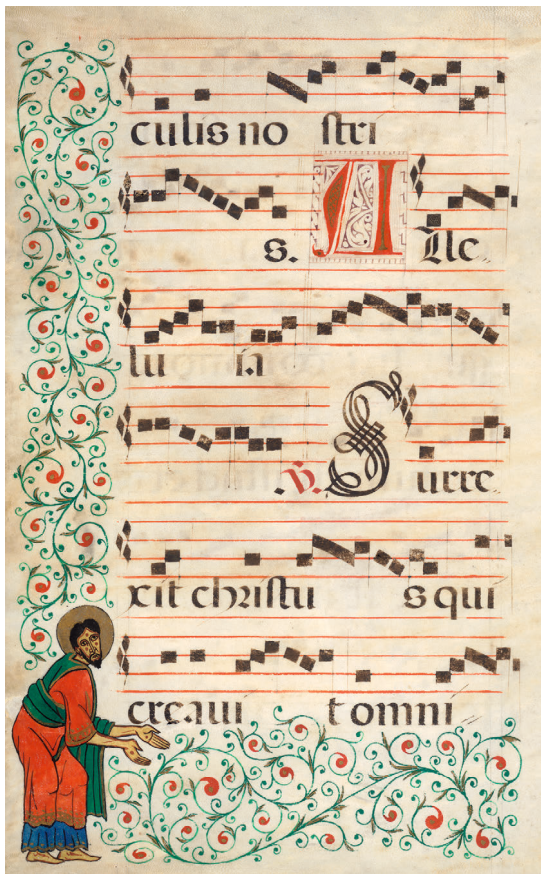 culis no stri
s. Alle
lu ia
℣. Surre
xit christu s qui
creaui t omni